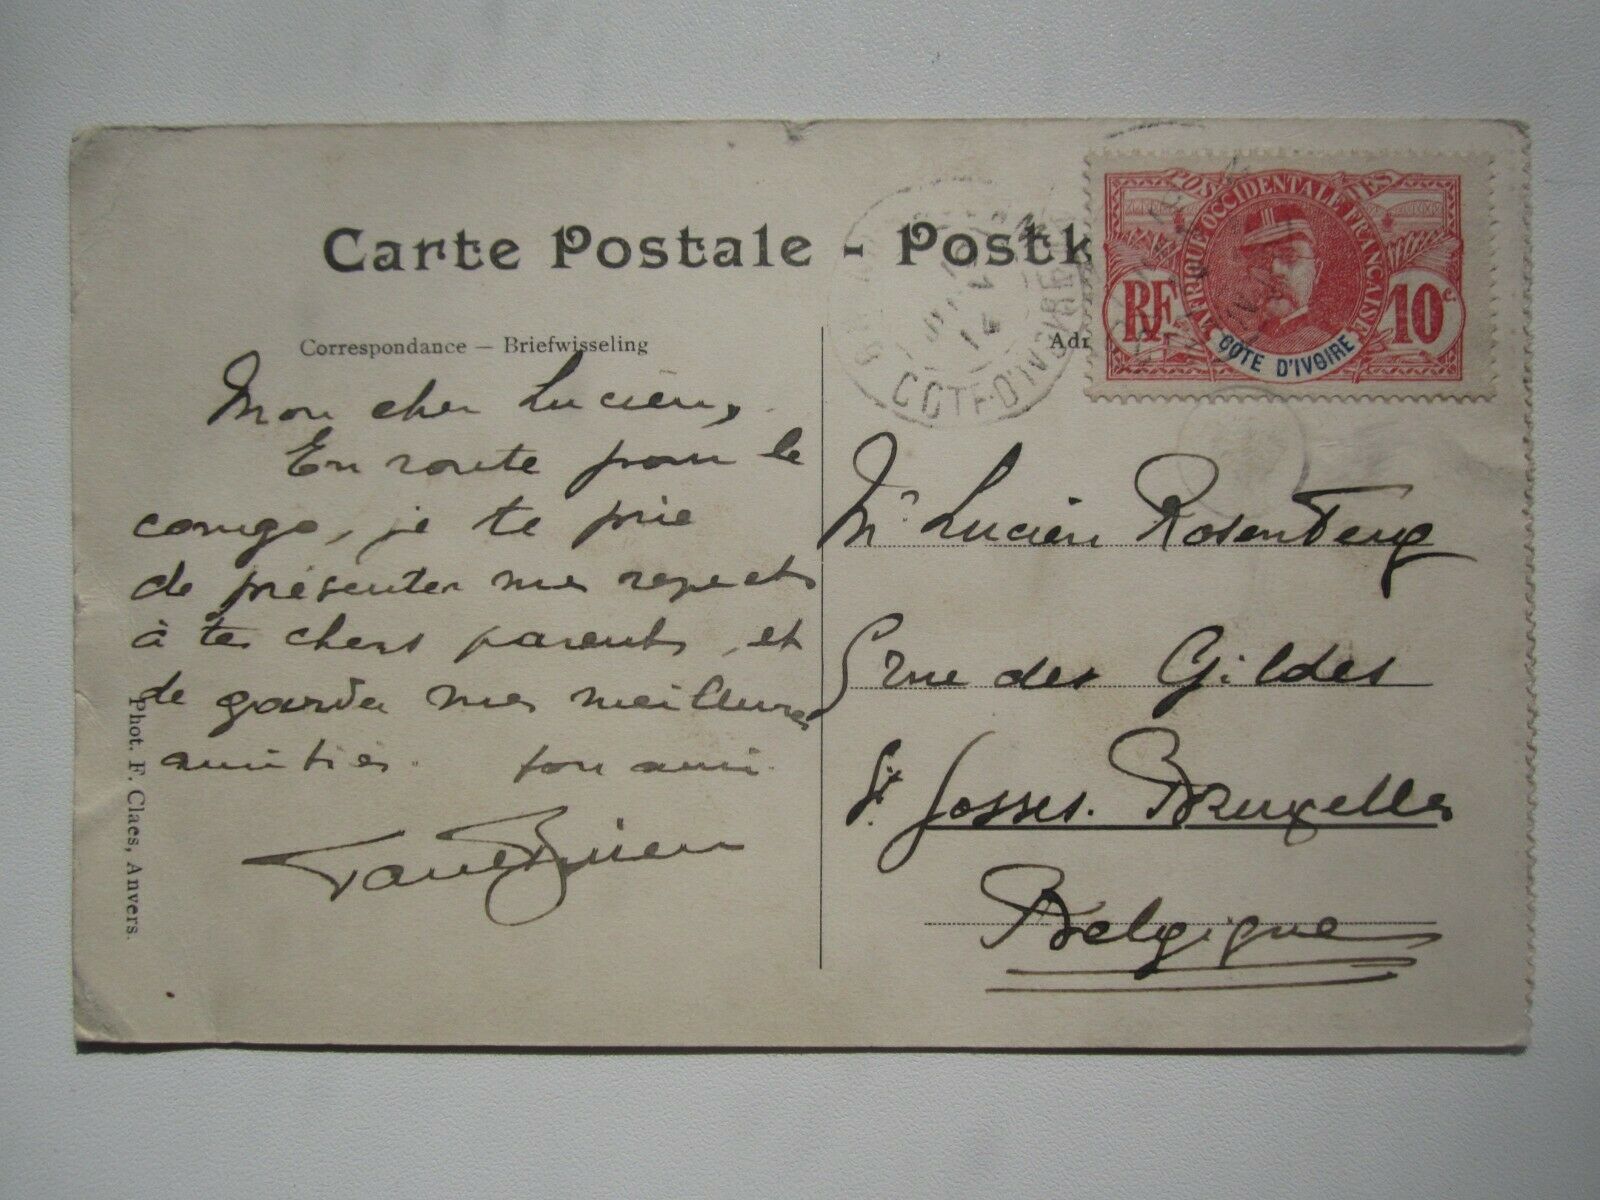 Carte Postale - Postk
Correspondance — Briefwisseling
Adr
POSTES
AFRIQUE OCCIDENTALE FRANÇAISE
RF
10c.
COTE D'IVOIRE
GRAND
14
COTE-D'IVOIRE
Mon cher Lucien,
En route pour le
congo, je te prie
de présenter mes respects
à tes chers parents, et
de garder mes meilleures
amitiés. ton ami
Mr. Lucien Rosenberg
5 rue des Gildes
St. Josses. Bruxelles
Belgique
Phot. F. Claes, Anvers.